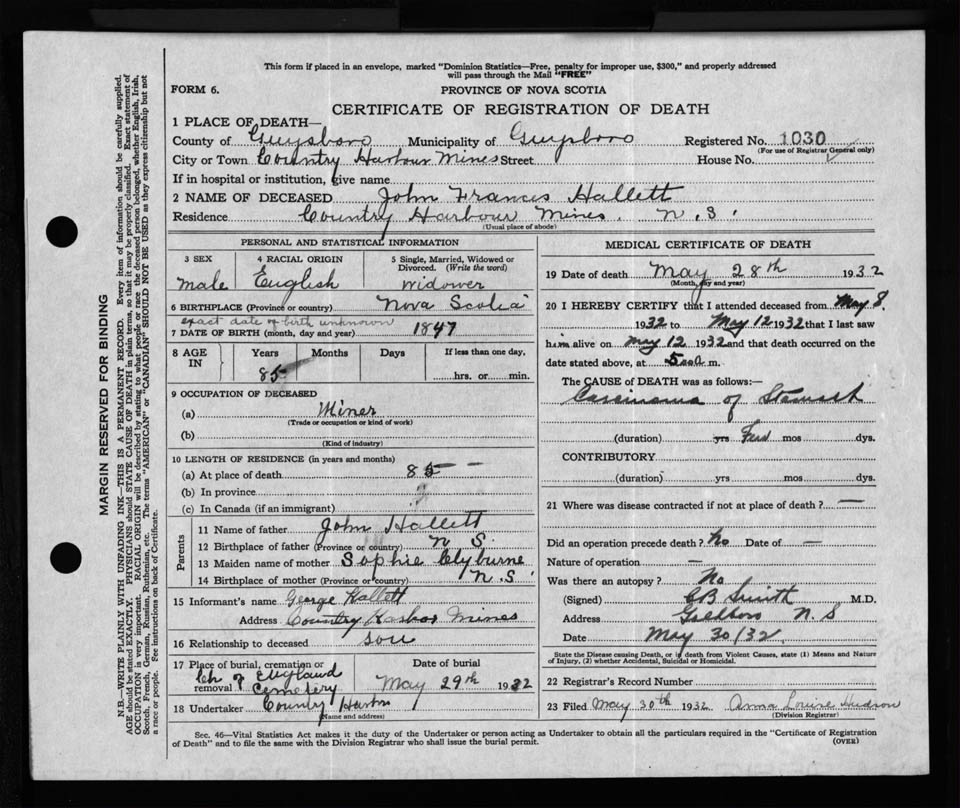 This form if placed in an envelope, marked "Dominion Statistics—Free, penalty for improper use, $300," and properly addressed
will pass through the Mail "FREE"
FORM 6.
PROVINCE OF NOVA SCOTIA
CERTIFICATE OF REGISTRATION OF DEATH
1 PLACE OF DEATH—
County of Guysboro Municipality of Guysboro Registered No. 1030
(For use of Registrar General only)
City or Town Country Harbour Mines Street House No.
If in hospital or institution, give name
2 NAME OF DECEASED John Frances Hallett
Residence Country Harbour Mines. N.S.
(Usual place of abode)
PERSONAL AND STATISTICAL INFORMATION
3 SEX 4 RACIAL ORIGIN 5 Single, Married, Widowed or Divorced. (Write the word)
male English widower
6 BIRTHPLACE (Province or country) Nova Scotia
exact date of birth unknown
7 DATE OF BIRTH (month, day and year) 1847
8 AGE IN Years Months Days If less than one day,
85 hrs. or min.
9 OCCUPATION OF DECEASED
(a) Miner
(Trade or occupation or kind of work)
(b)
(Kind of industry)
10 LENGTH OF RESIDENCE (in years and months)
(a) At place of death 85 —
(b) In province
(c) In Canada (if an immigrant)
Parents
11 Name of father John Hallett
12 Birthplace of father (Province or country) N S.
13 Maiden name of mother Sophie Clyburne
14 Birthplace of mother (Province or country) N.S.
15 Informant's name George Hallett
Address Country Harbor Mines
16 Relationship to deceased son
17 Place of burial, cremation or removal Ch of England Cemetery
Date of burial May 29th 1932
18 Undertaker Country Harbor
(Name and address)
MEDICAL CERTIFICATE OF DEATH
19 Date of death May 28th 1932
(Month, day and year)
20 I HEREBY CERTIFY that I attended deceased from May 8.
1932 to May 12 1932 that I last saw
him alive on May 12 1932 and that death occurred on the
date stated above, at 5 a.m.
The CAUSE of DEATH was as follows:—
Carcinoma of Stomach
(duration) yrs Few mos dys.
CONTRIBUTORY
(duration) yrs mos dys.
21 Where was disease contracted if not at place of death? —
Did an operation precede death? No Date of —
Nature of operation —
Was there an autopsy? No
(Signed) CB Smith M.D.
Address N S
Date May 30/32
State the Disease causing Death, or in death from Violent Causes, state (1) Means and Nature
of Injury, (2) whether Accidental, Suicidal or Homicidal.
22 Registrar's Record Number
23 Filed May 30th 1932 Anna Louise Hudson
(Division Registrar)
Sec. 46—Vital Statistics Act makes it the duty of the Undertaker or person acting as Undertaker to obtain all the particulars required in the "Certificate of Registration
of Death" and to file the same with the Division Registrar who shall issue the burial permit.
(OVER)
MARGIN RESERVED FOR BINDING
N.B.—WRITE PLAINLY WITH UNFADING INK—THIS IS A PERMANENT RECORD. Every item of information should be carefully supplied.
AGE should be stated EXACTLY. PHYSICIANS should STATE CAUSE OF DEATH in plain terms, so that it may be properly classified. Exact statement of
OCCUPATION is very important. RACIAL ORIGIN will be described by stating to what people or race the deceased person belonged, whether English, Irish,
Scotch, French, German, Russian, Ruthenian, etc. The terms "AMERICAN" or "CANADIAN" SHOULD NOT BE USED as they express citizenship but not
a race or people. See instructions on back of Certificate.